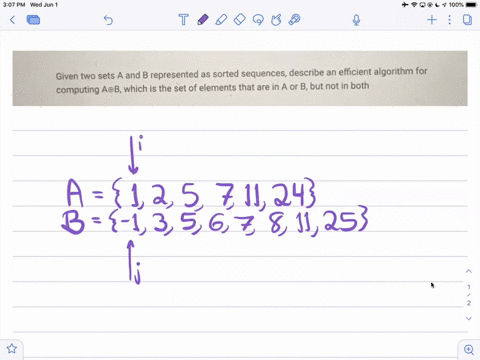 3:07 PM Wed Jun 1
100%
Given two sets A and B represented as sorted sequences, describe an efficient algorithm for
computing A⊕B, which is the set of elements that are in A or B, but not in both
i
A = {1, 2, 5, 7, 11, 24}
B = {-1, 3, 5, 6, 7, 8, 11, 25}
j
1
2